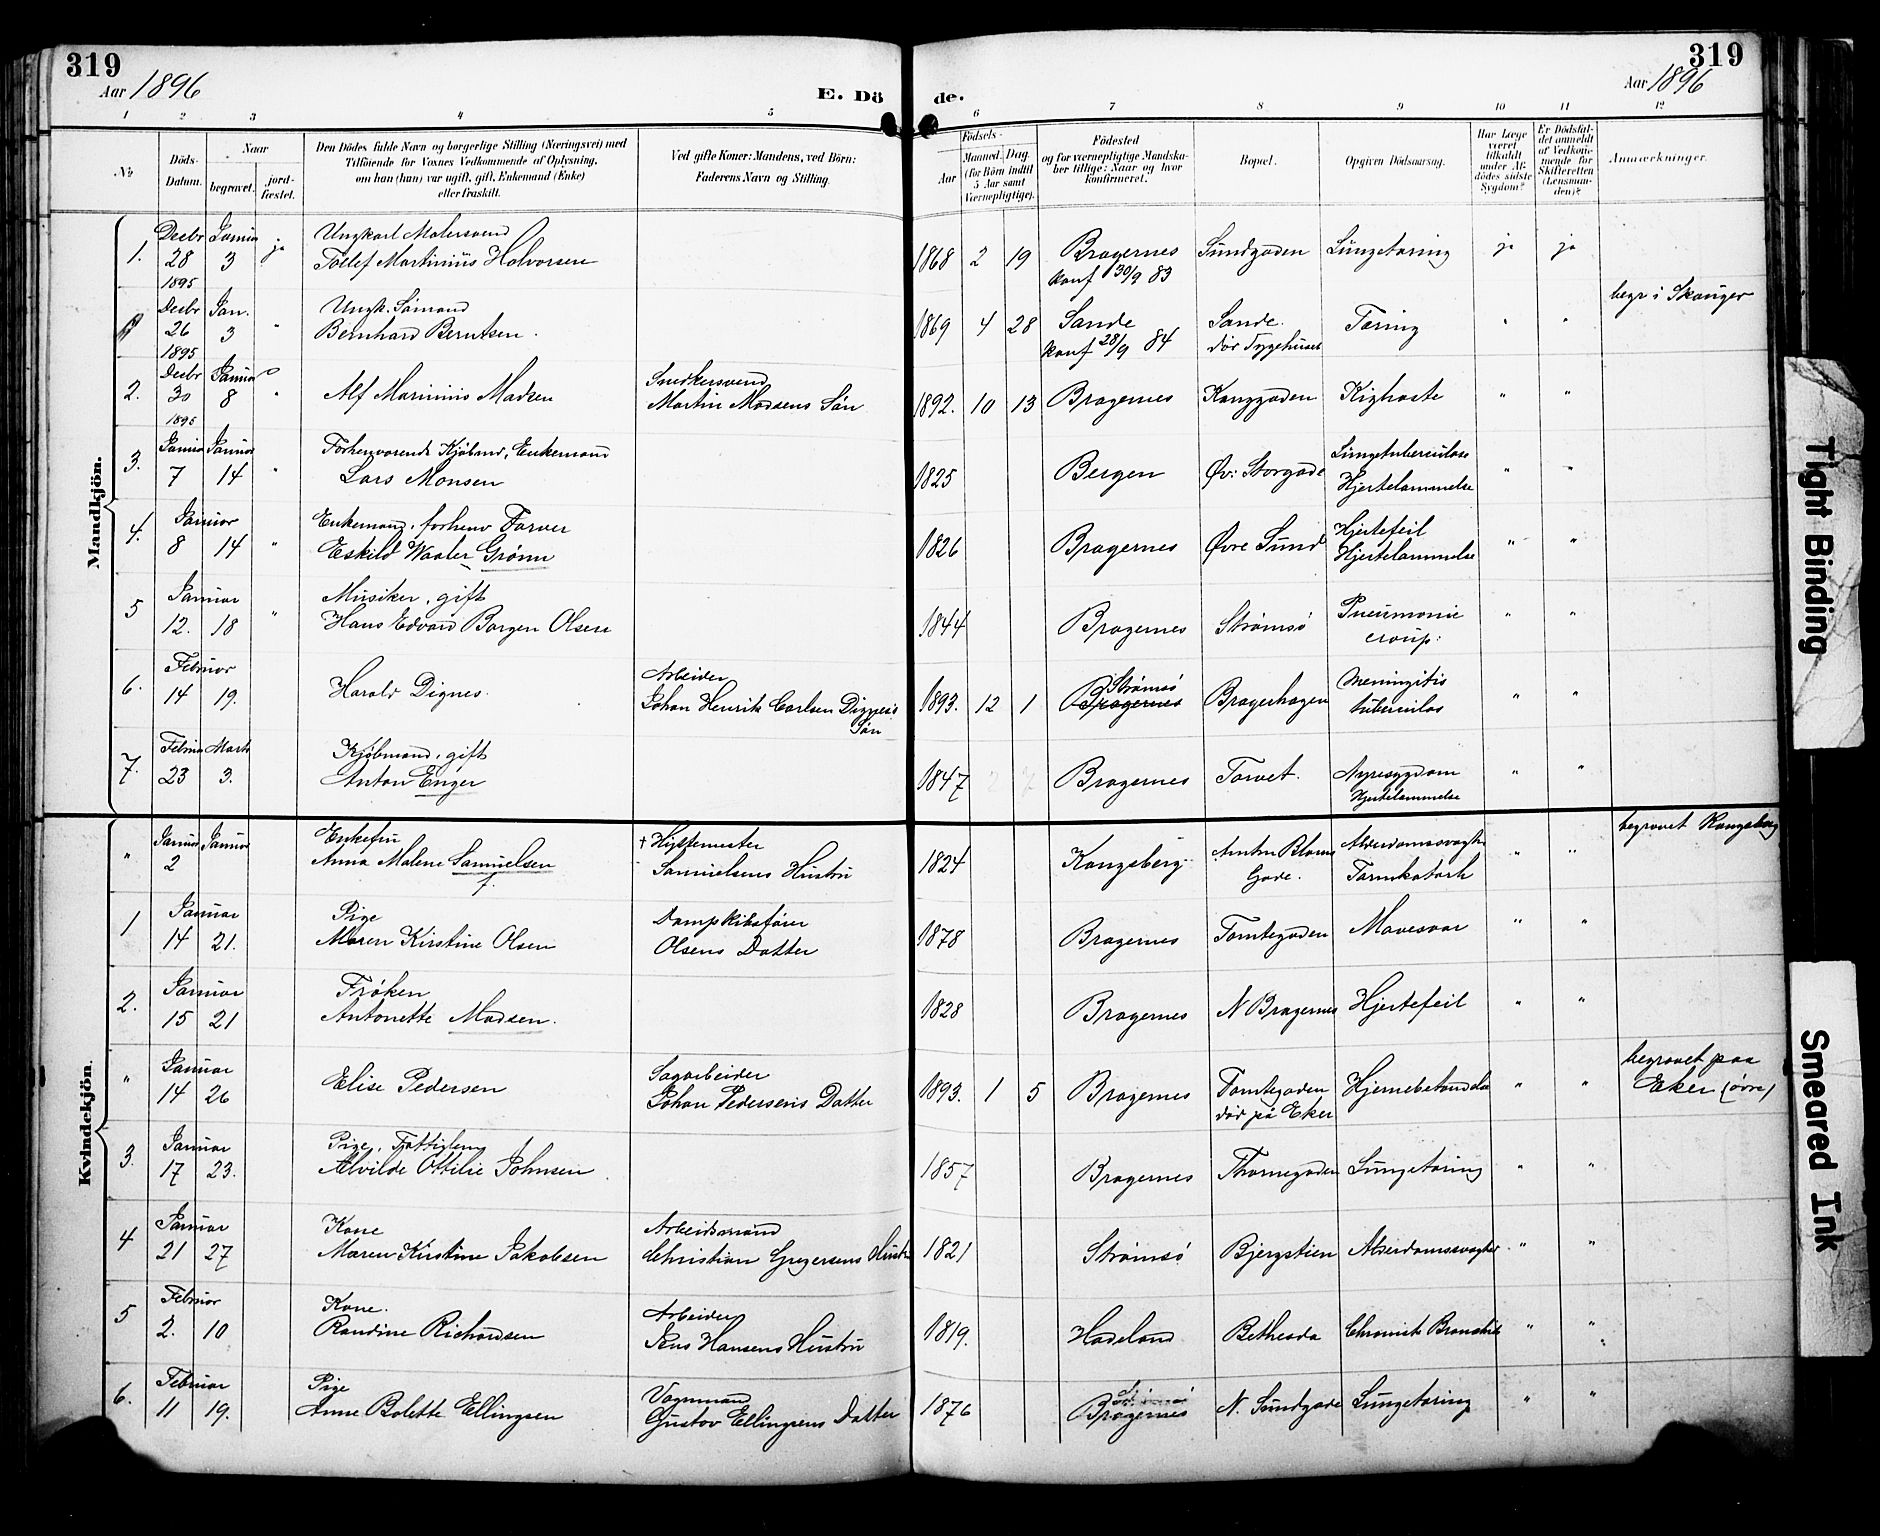 319
Aar 1896
E. Dö
de.
319
Aar 1896
1 2 3 4 5 6 7 8 9 10 11 12
No
Döds-
Datum.
Naar
begravet.
jord-
fæstet.
Den Dödes fulde Navn og borgerlige Stilling (Næringsvei) med
Tilföiende for Voxnes Vedkommende af Oplysning,
om han (hun) var ugift, gift, Enkemand (Enke)
eller fraskilt.
Ved gifte Koner: Mandens, ved Börn:
Faderens Navn og Stilling.
Födsels-
Aar
Maaned. Dag.
(for Börn indtil
5 Aar samt
Værnepligtige).
Födested
og for værnepligtige Mandska-
ber tillige: Naar og hvor
konfirmeret.
Bopæl.
Opgiven Dödsaarsag.
Har Læge
været
tilkaldt
under Af-
dödes sidste
Sygdom?
Er Dödsfal-
det anmeldt
af Vedkom-
mende for
Skifteretten
(Lensman-
den)?
Anmærkninger.
Mandkjön.
1. Decbr 28 1895 Januar 3 ja Ungkarl Malersvend
Tollef Martinius Halvorsen 1868 2 19 Bragernes Sundgaden Lungetæring ja ja
konf 30/9 83
Decbr 26 1895 Jan. 3 " Ungk. Sømand
Bernhard Berntsen. 1869 4 28 Sande Sande. Tæring " " begr i Skouger
konf 28/9 84 død Sygehuset
2. Decbr 30 1895 Januar 8 " Alf Marinius Madsen Snedkersvend
Martin Madsens Søn 1892. 10 13 Bragernes Konggaden Kighoste " "
3. Januar 7 Januar 14 " Forhenværende Kjøbmd, Enkemand
Lars Monsen 1825 Bergen Øv: Storgade Lungetuberculose
Hjertelammelse " "
4. Januar 8 14 " Enkemand, forhenv Farver
Eskild Waaler Grønn 1826 Bragernes Øvre Sund Hjertefeil
Hjertelammelse " "
5 Januar 12. 18 " Musiker, gift
Hans Edvard Borgen Olsen 1844 Bragernes Strømsø Pneumonie
croup: " "
6. Februar 14 19. Harald Dignes. Arbeider
Johan Henrik Carlsen Dignes
Søn 1893. 12 1 Strømsø
Bragernes Bragerhagen Meningitis
tuberculos " "
7. Februar 23 Marts 3. Kjøbmand, gift
Anton Enger 1847 2 7 Bragernes Torvet. Nyresygdom
Hjertelammelse " "
Kvindekjön.
" Januar 2 Januar Enkefru
Anna Malene Samuelsen
f. + Hyttemester
Samuelsens Hustru 1824 Kongsberg Gade. Alderdomssvaghed
Tarmkatarh " " begravet Kongsberg
1 Januar 14 21. Pige
Maren Kirstine Olsen Dampskibsfører
Olsens Datter 1878 Bragernes Tomtegaden Mavesaar " "
2. Januar 15 21 Frøken
Antonette Madsen. 1828 Bragernes N Bragernes Hjertefeil " "
" Januar 14 26 Elise Pedersen Sagarbeider
Johan Pedersens Datter 1893. 1 5 Bragernes Tomtegaden
død på Eker Hjernebetændelse " " begravet paa
Eker (øvre)
3. Januar 17 23. Pige, Fattiglem
Alvilde Ottilie Johnsen. 1857 Bragernes Thornegaden Lungetæring " "
4 Januar 21 27 Kone
Maren Kirstine Jakobsen Arbeidsmand
Christian Gregersens Hustru 1821 Strømsø Bjergstien Alderdomssvaghed " "
5 Februar 2. 10 Kone.
Randine Richardsen Arbeider
Jens Hansens Hustru 1819. Hadeland Bethesda Chronisk Bronchit " "
6. Februar 11 19. Pige
Anne Bolette Ellingsen Vognmand
Gustav Ellingsens Datter 1876 Bragernes N. Sundgade Lungetæring " "
Tight Binding
Smeared Ink